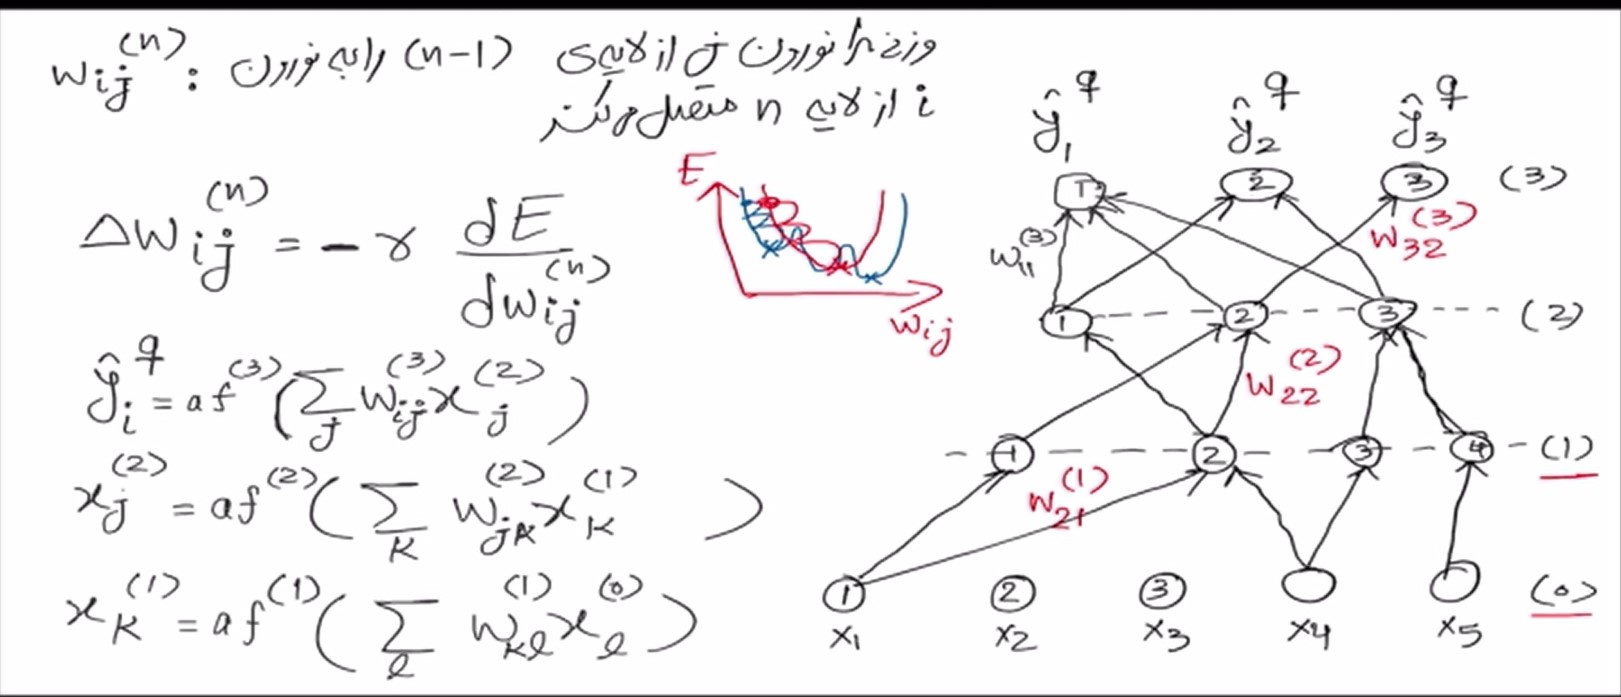 w_ij^(n) : وزنی را نورون j از لایه‌ی (n-1) را به نورون
i از لایه n متصل می‌کند
Δw_ij^(n) = -γ dE / dw_ij^(n)
E
w_ij
ŷ_i^q = af^(3) (∑_j w_ij^(3) x_j^(2))
x_j^(2) = af^(2) (∑_K w_jK^(2) x_K^(1))
x_K^(1) = af^(1) (∑_l w_Kl^(1) x_l^(0))
ŷ_1^q ŷ_2^q ŷ_3^q
1 2 3 (3)
w_11^(3) w_32^(3)
1 2 3 (2)
w_22^(2)
1 2 3 4 (1)
w_21^(1)
1 2 3 (0)
x1 x2 x3 x4 x5